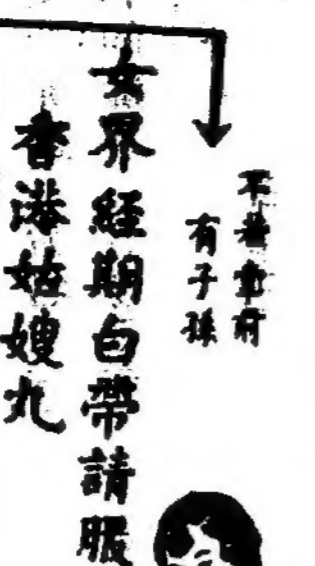 不 府
有子孫
女界經期白帶請服
香港姑嫂丸